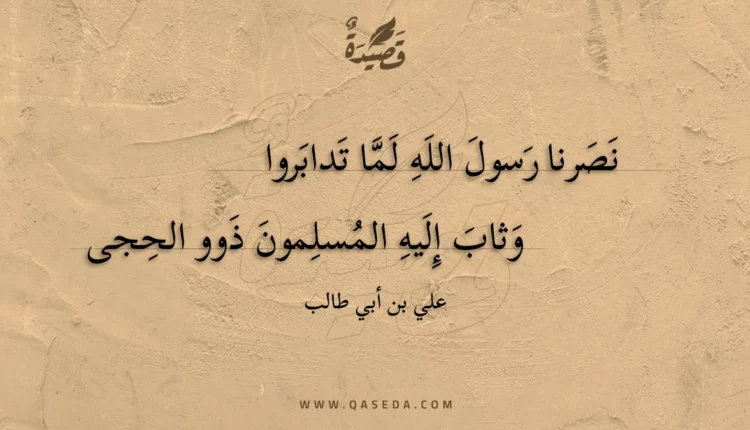 قَصِيدَةٌ
نَصَرنا رَسولَ اللَهِ لَمَّا تَدابَروا
وَثابَ إِلَيهِ المُسلِمونَ ذَوو الحِجى
علي بن أبي طالب
WWW.QASEDA.COM